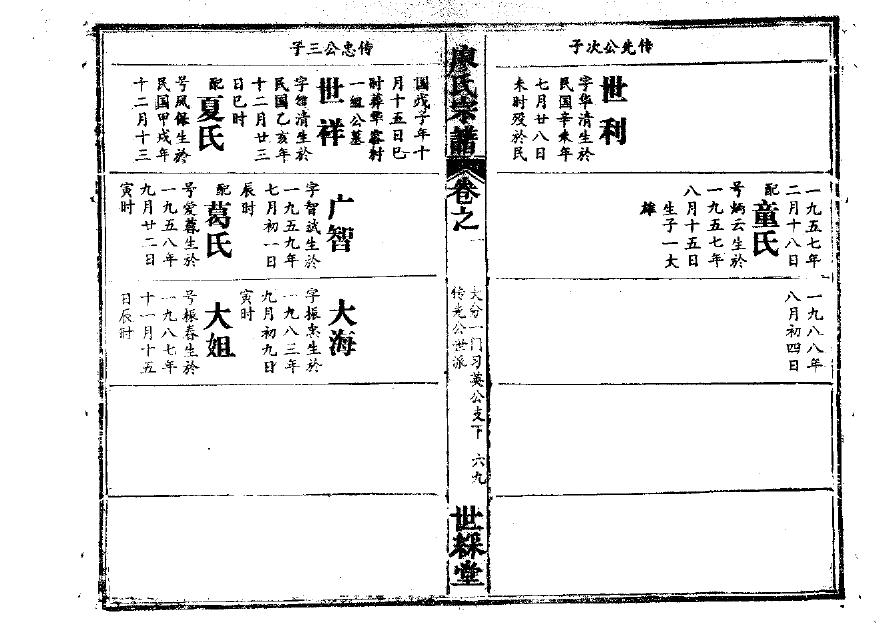 传先公次子
世利
字华清生於
民国辛未年
七月廿八日
未时殁於民
一九五七年
二月十八日
配
童氏
号炳云生於
一九五七年
八月十五日
生子一太
雄
一九八八年
八月初四日
廖氏宗谱
卷之
大分一门习英公支下 六九
传先公世派
世綵堂
传忠公三子
国戊子年十
月十五日巳
时葬华容村
一组公墓
世祥
字馆清生於
民国乙亥年
十二月廿三
日巳时
配
夏氏
号凤保生於
民国甲戌年
十二月十三
广智
字智武生於
一九五九年
七月初一日
辰时
配
葛氏
号爱蓉生於
一九五八年
九月廿二日
寅时
大海
字振杰生於
一九八三年
九月初九日
寅时
大姐
号振春生於
一九八七年
十一月十五
日辰时